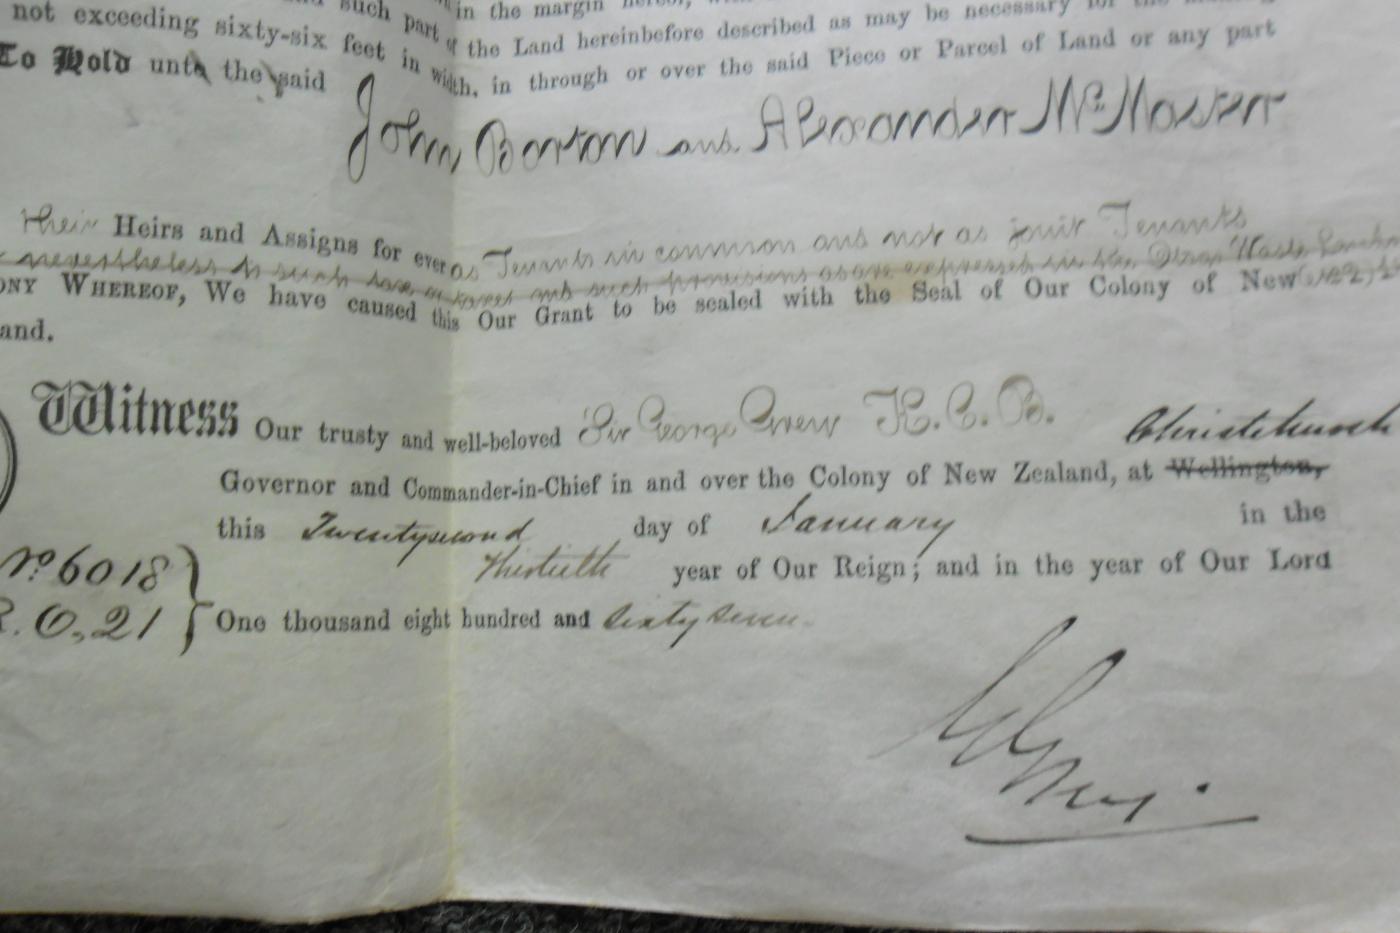 such part in the margin hereof,
not exceeding sixty-six feet in width, in through or over the said Piece or Parcel of Land or any part
of the Land hereinbefore described as may be necessary for the
To Hold unto the said
John Borton and Alexander McMaster
their Heirs and Assigns for ever as Tenants in common and not as joint Tenants
nevertheless to such and such provisions as are expressed in the Otago Waste Lands
ONY WHEREOF, We have caused this Our Grant to be sealed with the Seal of Our Colony of New
and.
Witness Our trusty and well-beloved Sir George Grey K.C.B.
Christchurch
Governor and Commander-in-Chief in and over the Colony of New Zealand, at Wellington,
this Twentysecond day of January in the
Thirtieth year of Our Reign; and in the year of Our Lord
No 6018
R. O, 21
One thousand eight hundred and sixty seven.
G Grey.